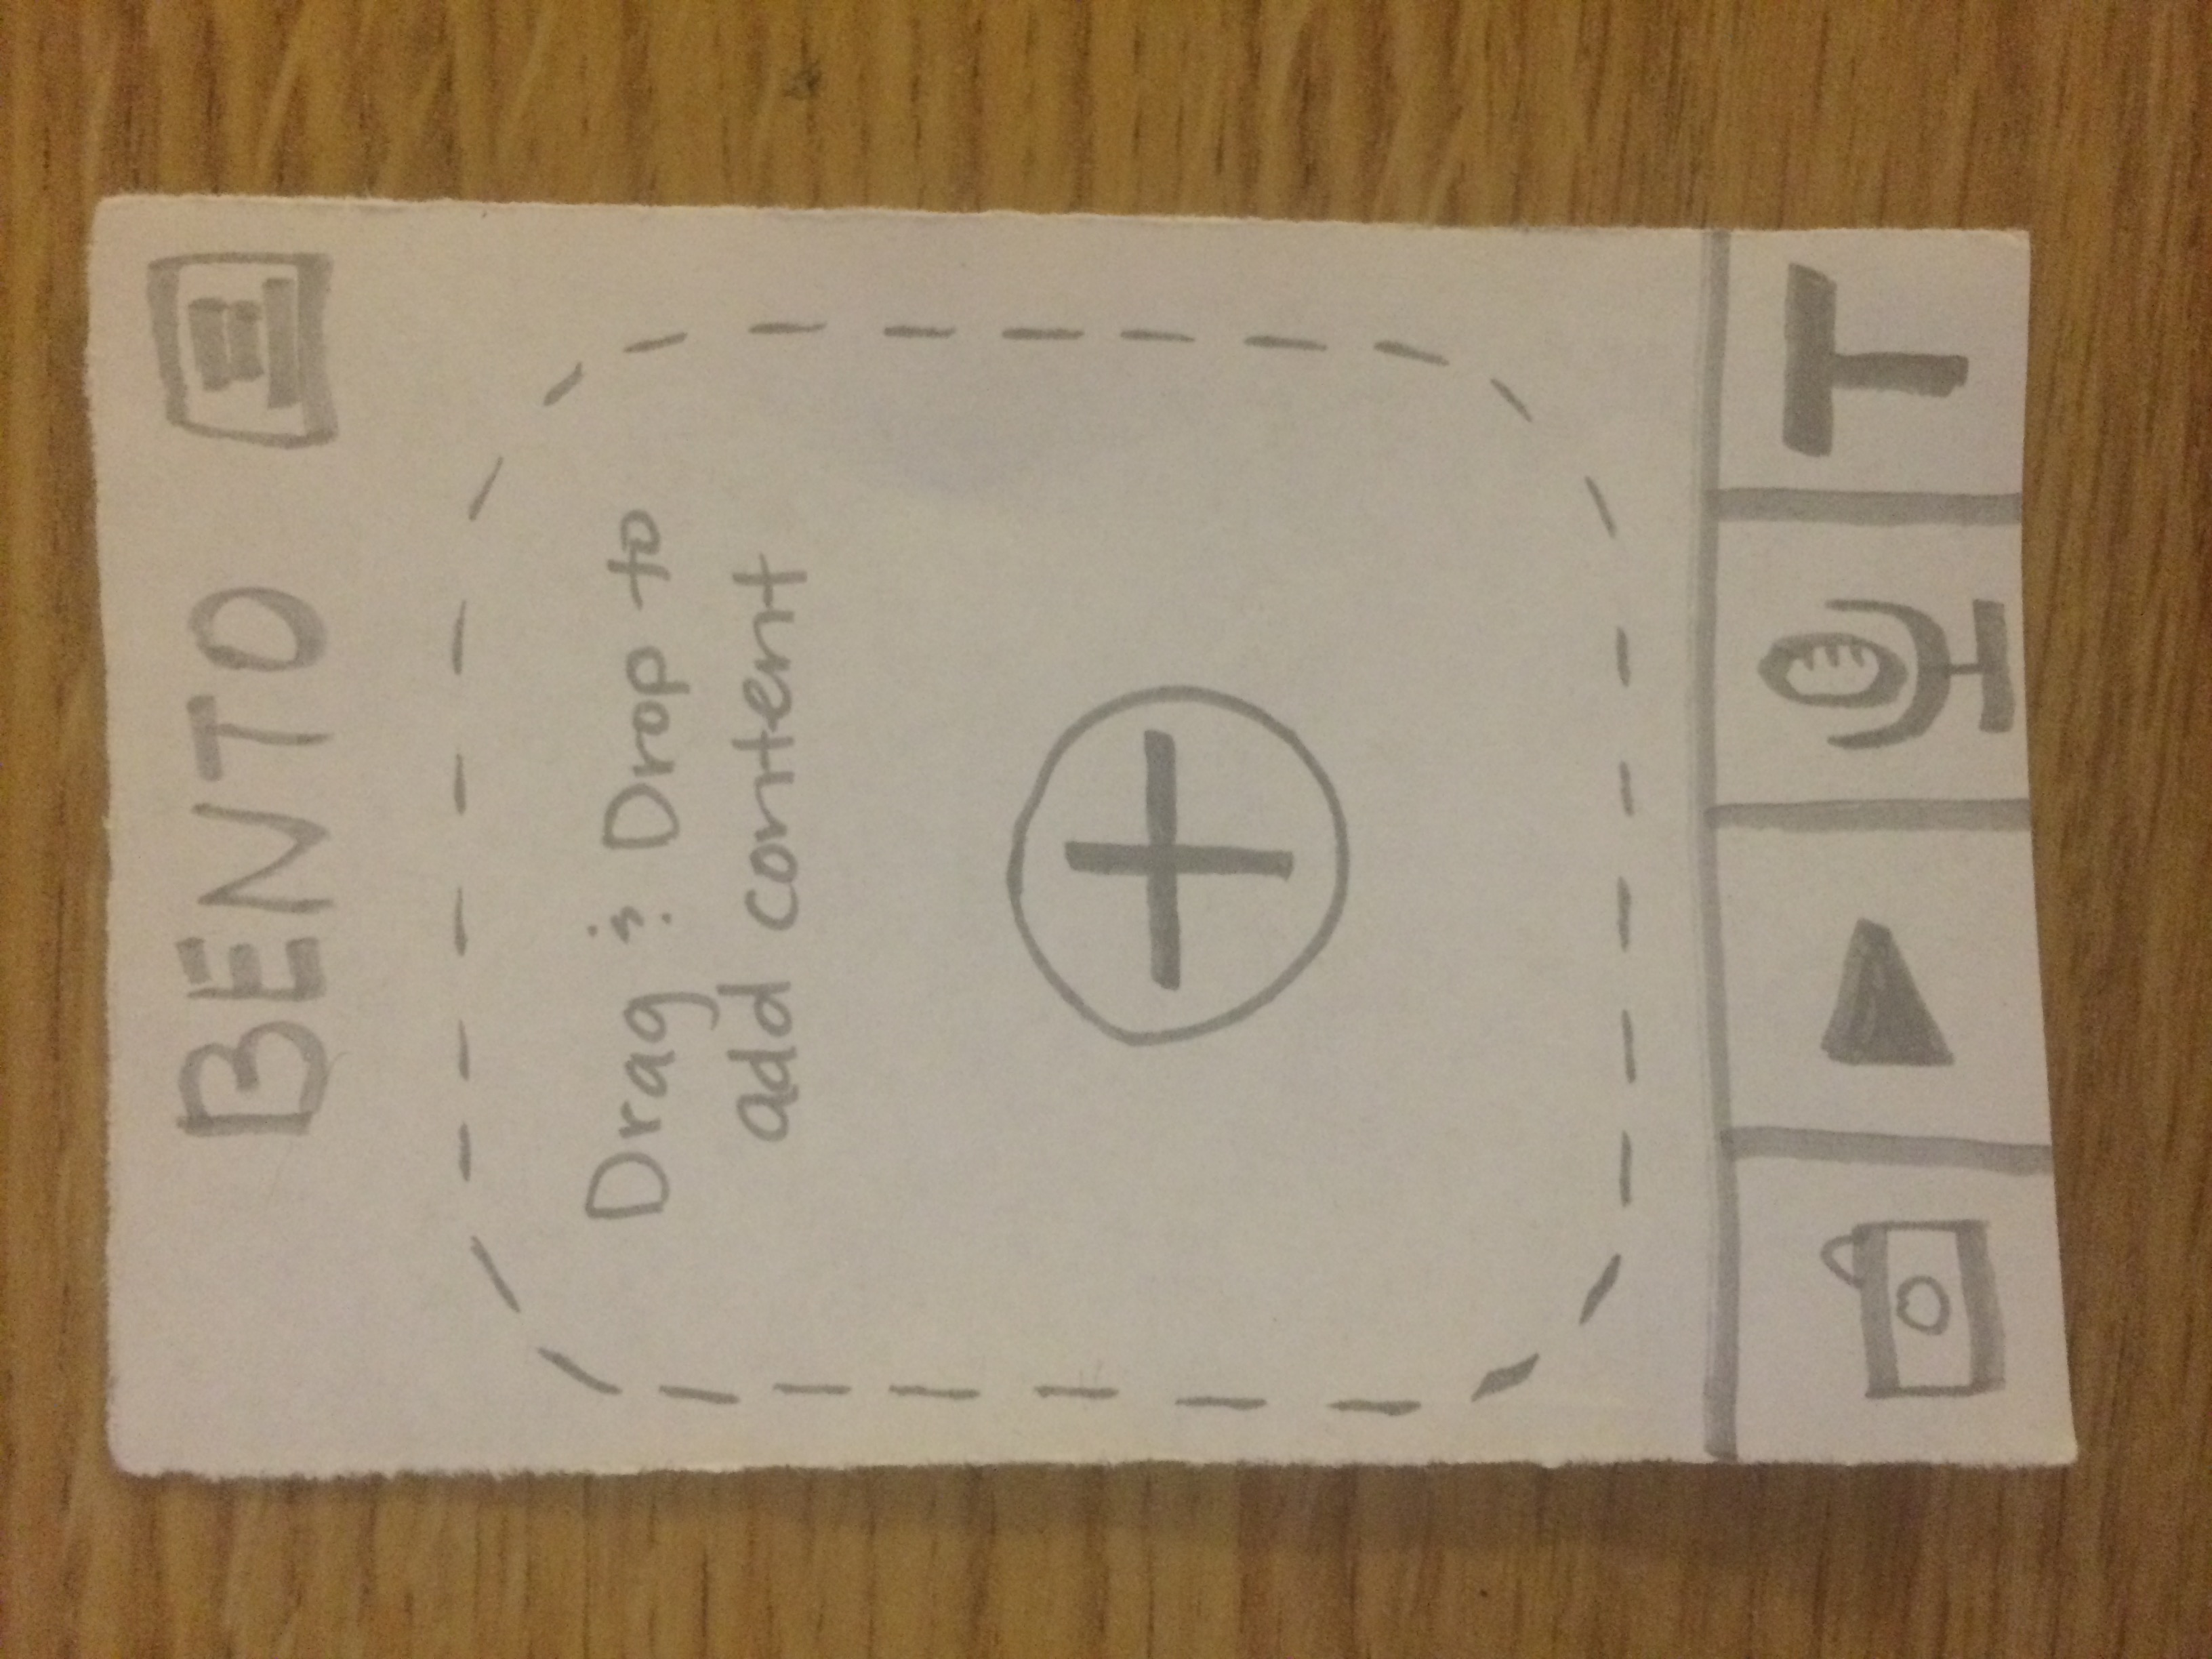 BENTO
Drag & Drop to
add content
T